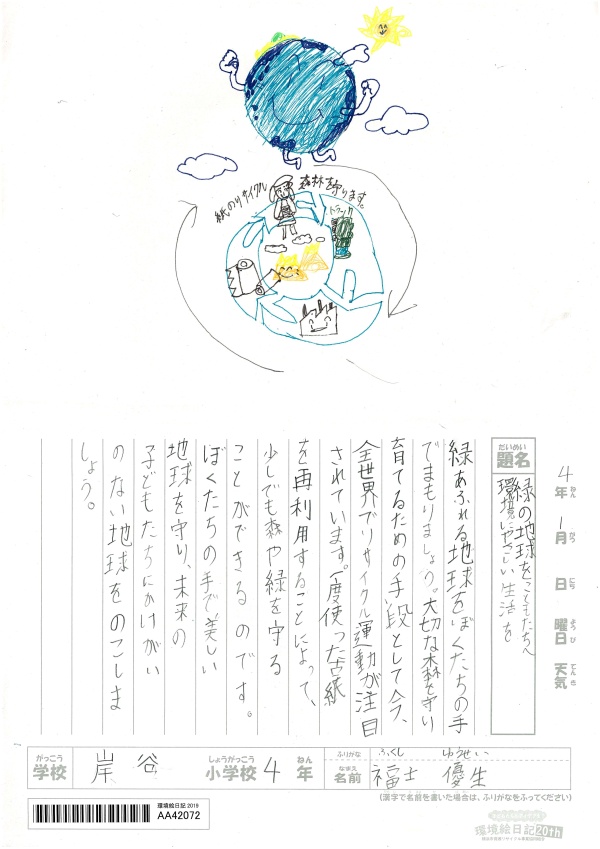 紙のリサイクル
森林を守ります。
トラック
4年 1月 日 曜日 天気
ねん がつ にち ようび てんき
だいめい
題名
緑の地球をこどもたちへ
環境にやさしい生活を
緑あふれる地球をぼくたちの手
でまもりましょう。大切な森を守り
育てるための手段として今、
全世界でリサイクル運動が注目
されています。一度使った古紙
を再利用することによって、
少しでも森や緑を守る
ことができるのです。
ぼくたちの手で美しい
地球を守り、未来の
子どもたちにかけがい
のない地球をのこしま
しょう。
がっこう しょうがっこう ねん
学校 岸谷 小学校 4年
ふりがな ふくし ゆうせい
なまえ
名前 福士 優生
(漢字で名前を書いた場合は、ふりがなをふってください)
環境絵日記 2019
AA42072
環境絵日記 20th